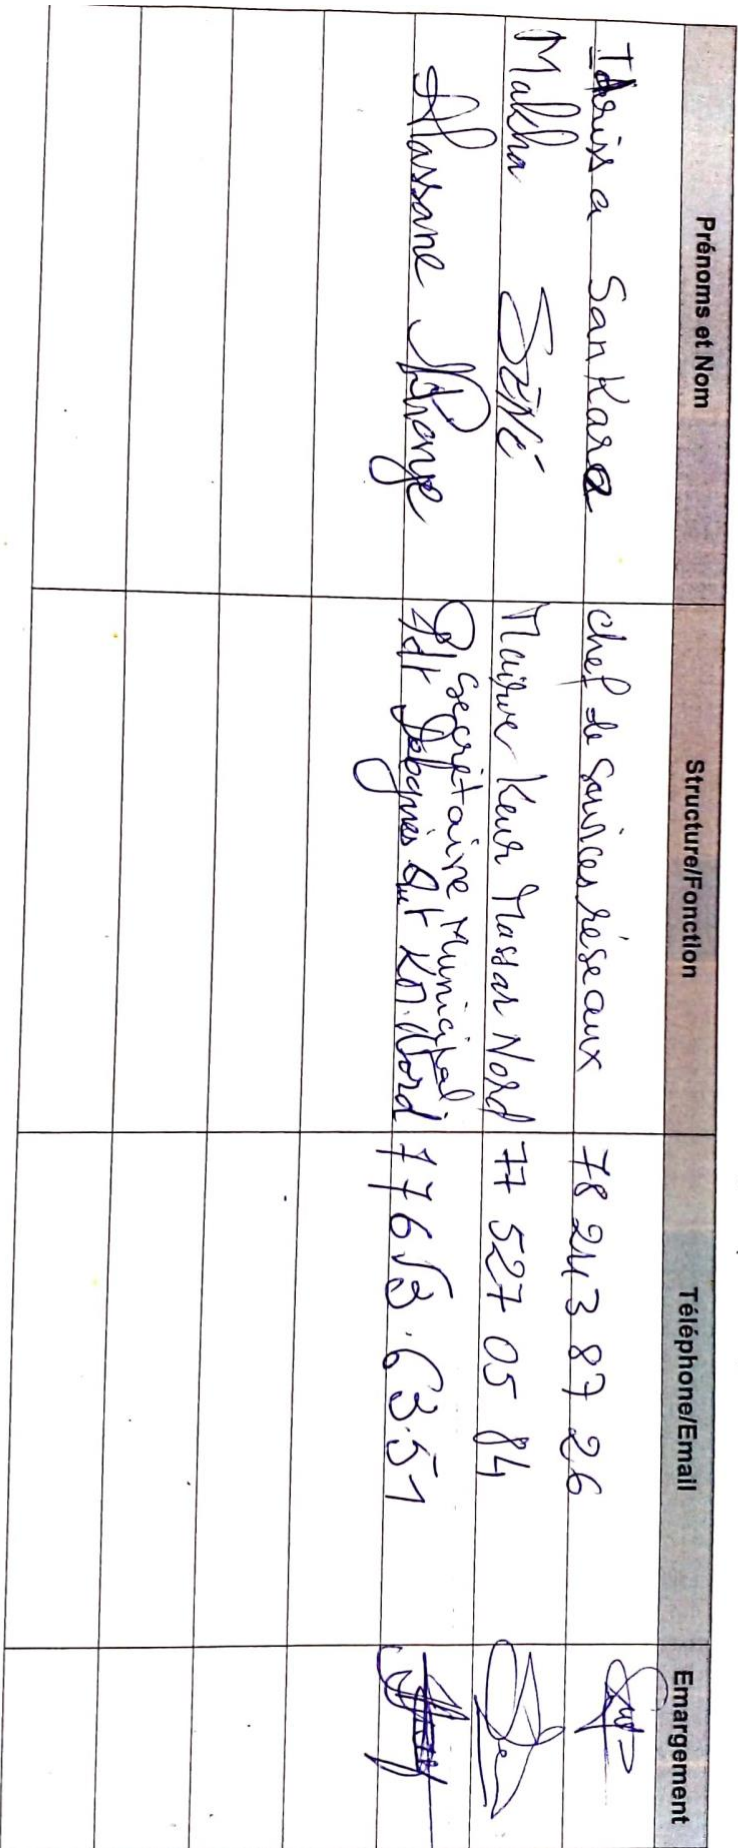 Prénoms et Nom Structure/Fonction Téléphone/Email Emargement
Idrissa Sankara chef de services réseaux 78 243 87 26
Makha SéNé Mairie Keur Massar Nord 77 527 05 84
Secrétaire Municipal
Alassane Ndiaye Pdt Nord 776 63.51